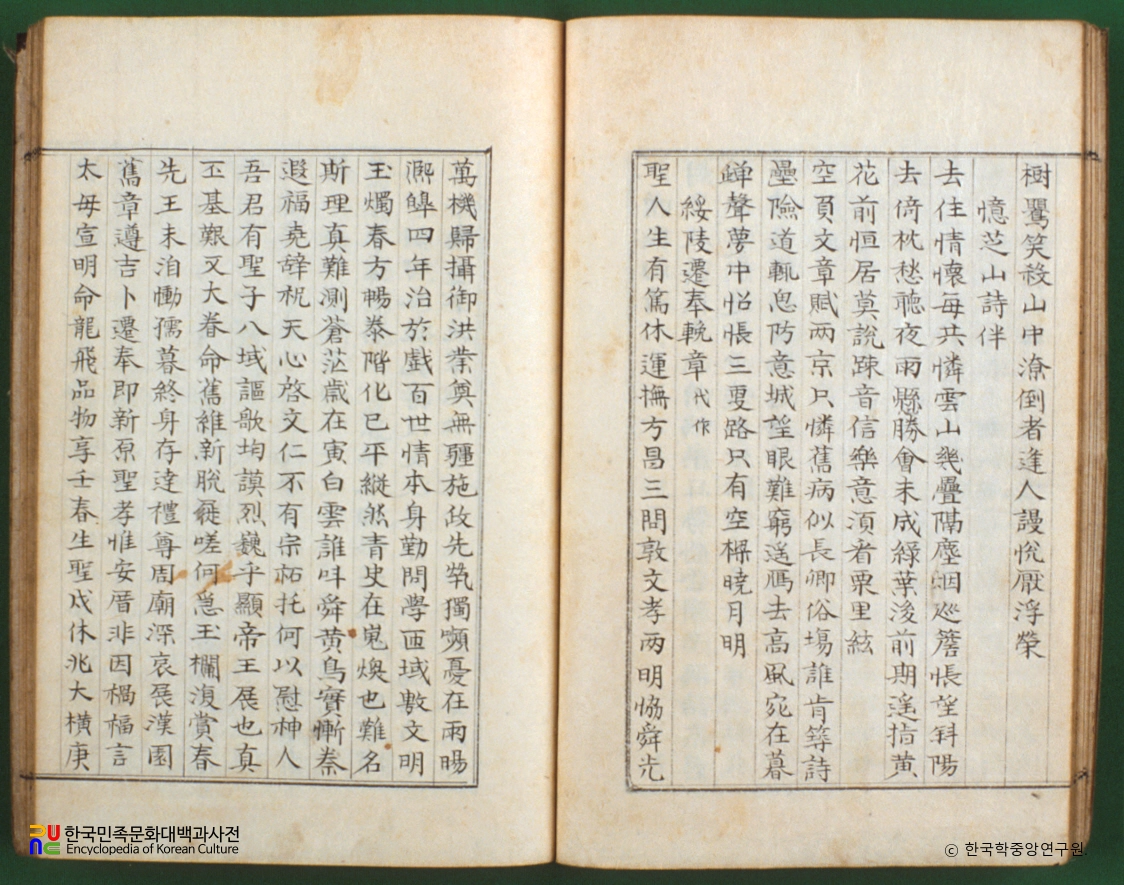 樹鸎笑殺山中潦倒者逢人謾恱厭浮榮
憶芝山詩伴
去住情懷每共憐雲山幾疊隔塵烟巡簷悵望斜陽
去倚枕愁聽夜雨懸勝會未成綠葉後前期遙指黃
花前恒居莫說踈音信樂意湏看栗里絃
空負文章賦兩京只憐舊病似長卿俗場誰肯筭詩
壘險道軏思防意城望眼難窮遙鴈去高風宛在暮
蟬聲夢中怊悵三更路只有空樑曉月明
綏陵遷奉輓章 代作
聖人生有篤休運撫方昌三問敦文孝兩明恊舜光
萬機歸攝御洪業奠無疆施政先煢獨嚬憂在雨暘
凞皥四年治於戲百世情本身勤問學匝域敷文明
玉燭春方暢泰階化已平縱然青史在嵬煥也難名
斯理真難測蒼茫歲在寅白雲誰呌舜黃鳥實慚秦
遐福堯辭祝天心啓文仁不有宗祏托何以慰神人
吾君有聖子八域謳歌均謨烈巍乎顯帝王展也真
丕基艱又大眷命舊維新脫屣嗟何急玉欄復賞春
先王末洎慟孺暮終身存達禮尊周廟深哀展漢園
舊章遵吉卜遷奉即新原聖孝惟安厝非因禍福言
太母宣明命龍飛品物享壬春生聖戊休兆大橫庚
한국민족문화대백과사전
Encyclopedia of Korean Culture
ⓒ 한국학중앙연구원.